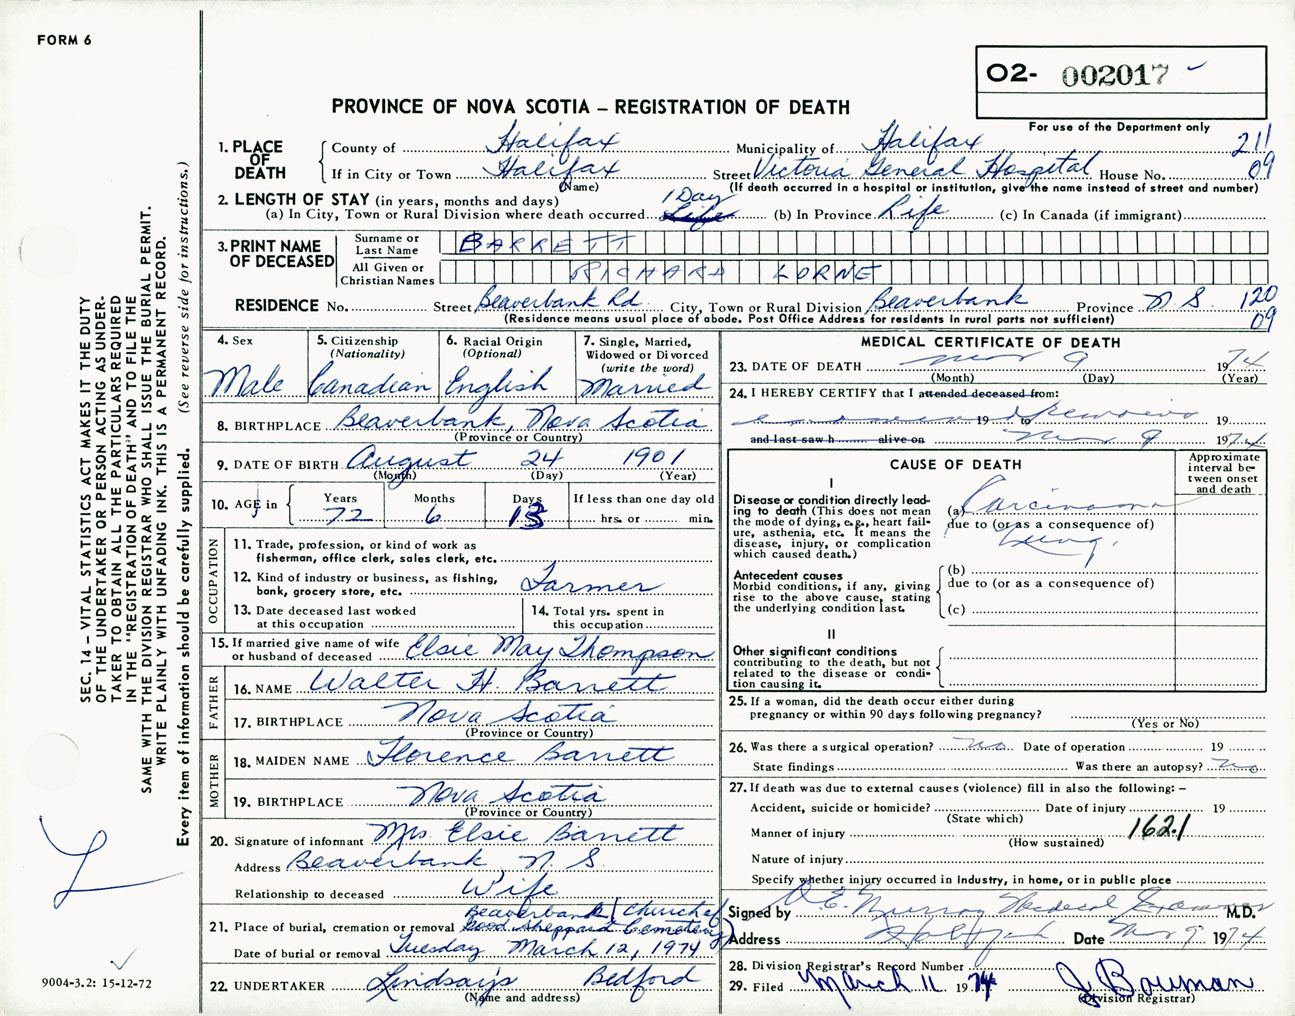 FORM 6
O2- 002017
PROVINCE OF NOVA SCOTIA – REGISTRATION OF DEATH
For use of the Department only
1. PLACE OF DEATH
County of Halifax Municipality of Halifax 211
If in City or Town Halifax Street Victoria General Hospital House No. 09
(Name) (If death occurred in a hospital or institution, give the name instead of street and number)
2. LENGTH OF STAY (in years, months and days) 1 Day
(a) In City, Town or Rural Division where death occurred Life (b) In Province Life (c) In Canada (if immigrant)
3. PRINT NAME OF DECEASED
Surname or Last Name BARRETT
All Given or Christian Names RICHARD LORNE
RESIDENCE No. Street Beaverbank Rd. City, Town or Rural Division Beaverbank Province N.S. 120
(Residence means usual place of abode. Post Office Address for residents in rural parts not sufficient) 09
4. Sex
Male
5. Citizenship
(Nationality)
Canadian
6. Racial Origin
(Optional)
English
7. Single, Married,
Widowed or Divorced
(write the word)
Married
8. BIRTHPLACE Beaverbank, Nova Scotia
(Province or Country)
9. DATE OF BIRTH August 24 1901
(Month) (Day) (Year)
10. AGE in
Years Months Days If less than one day old
72 6 13 hrs. or min.
OCCUPATION
11. Trade, profession, or kind of work as
fisherman, office clerk, sales clerk, etc.
12. Kind of industry or business, as fishing,
bank, grocery store, etc. Farmer
13. Date deceased last worked
at this occupation
14. Total yrs. spent in
this occupation
15. If married give name of wife
or husband of deceased Elsie May Thompson
FATHER
16. NAME Walter H. Barrett
17. BIRTHPLACE Nova Scotia
(Province or Country)
MOTHER
18. MAIDEN NAME Florence Barrett
19. BIRTHPLACE Nova Scotia
(Province or Country)
20. Signature of informant Mrs. Elsie Barrett
Address Beaverbank, N. S.
Relationship to deceased Wife
Beaverbank (Church of
21. Place of burial, cremation or removal Good Sheppard Cemetery)
Date of burial or removal Tuesday March 12, 1974
22. UNDERTAKER Lindsay's Bedford
(Name and address)
MEDICAL CERTIFICATE OF DEATH
23. DATE OF DEATH Mar 9 1974
(Month) (Day) (Year)
24. I HEREBY CERTIFY that I attended deceased from:
19 to 19
and last saw h alive on Mar 9 1974
CAUSE OF DEATH
Approximate
interval be-
tween onset
and death
I
Disease or condition directly lead-
ing to death (This does not mean
the mode of dying, e.g., heart fail-
ure, asthenia, etc. It means the
disease, injury, or complication
which caused death.)
(a) Carcinoma
due to (or as a consequence of)
Lung.
Antecedent causes
Morbid conditions, if any, giving
rise to the above cause, stating
the underlying condition last.
(b)
due to (or as a consequence of)
(c)
II
Other significant conditions
contributing to the death, but not
related to the disease or condi-
tion causing it.
25. If a woman, did the death occur either during
pregnancy or within 90 days following pregnancy?
(Yes or No)
26. Was there a surgical operation? no Date of operation 19
State findings Was there an autopsy? no
27. If death was due to external causes (violence) fill in also the following: –
Accident, suicide or homicide? Date of injury 19
(State which)
Manner of injury 162.1
(How sustained)
Nature of injury
Specify whether injury occurred in industry, in home, or in public place
Signed by D.E. Murray Medical Examiner M.D.
Address Halifax Date Mar 9 1974
28. Division Registrar's Record Number
29. Filed March 11 1974 J Bowman
(Division Registrar)
SEC. 14 – VITAL STATISTICS ACT MAKES IT THE DUTY
OF THE UNDERTAKER OR PERSON ACTING AS UNDER-
TAKER TO OBTAIN ALL THE PARTICULARS REQUIRED
IN THE "REGISTRATION OF DEATH" AND TO FILE THE
SAME WITH THE DIVISION REGISTRAR WHO SHALL ISSUE THE BURIAL PERMIT.
WRITE PLAINLY WITH UNFADING INK. THIS IS A PERMANENT RECORD.
Every item of information should be carefully supplied. (See reverse side for instructions.)
9004-3.2: 15-12-72